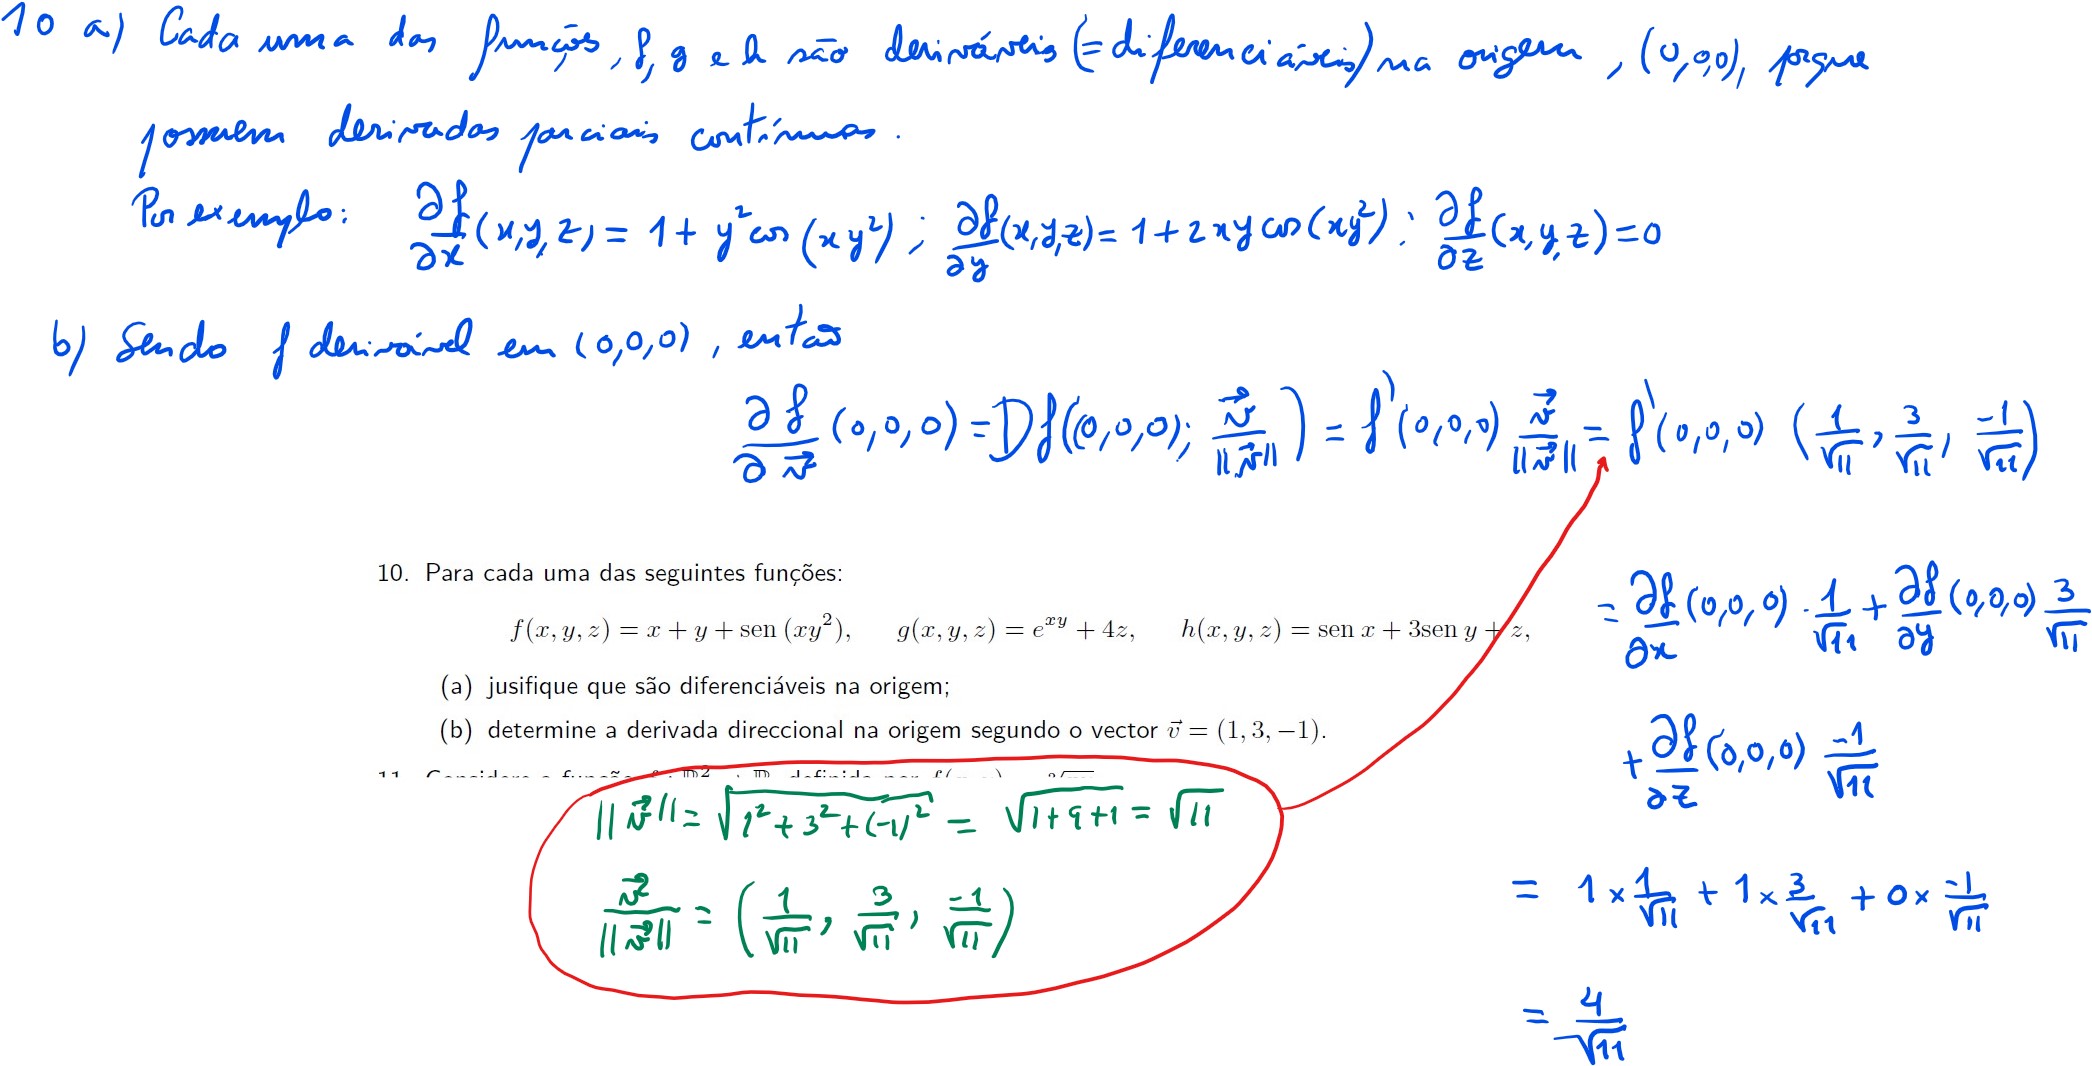 10 a) Cada uma das funções, f, g e h são deriváveis (= diferenciáveis) na origem, (0,0,0), porque
possuem derivadas parciais contínuas.
Por exemplo: ∂f/∂x (x,y,z) = 1 + y² cos (xy²) ; ∂f/∂y (x,y,z) = 1 + 2xy cos (xy²) ; ∂f/∂z (x,y,z) = 0
b) Sendo f derivável em (0,0,0), então
∂f/∂v⃗ (0,0,0) = Df((0,0,0); v⃗/||v⃗||) = f'(0,0,0) v⃗/||v⃗|| = f'(0,0,0) (1/√11, 3/√11, -1/√11)
= ∂f/∂x (0,0,0) · 1/√11 + ∂f/∂y (0,0,0) 3/√11
+ ∂f/∂z (0,0,0) -1/√11
= 1 × 1/√11 + 1 × 3/√11 + 0 × -1/√11
= 4/√11
10. Para cada uma das seguintes funções:
f(x, y, z) = x + y + sen (xy²), g(x, y, z) = e^{xy} + 4z, h(x, y, z) = sen x + 3sen y + z,
(a) jusifique que são diferenciáveis na origem;
(b) determine a derivada direccional na origem segundo o vector v⃗ = (1, 3, −1).
||v⃗|| = √(1² + 3² + (-1)²) = √(1+9+1) = √11
v⃗/||v⃗|| = (1/√11, 3/√11, -1/√11)